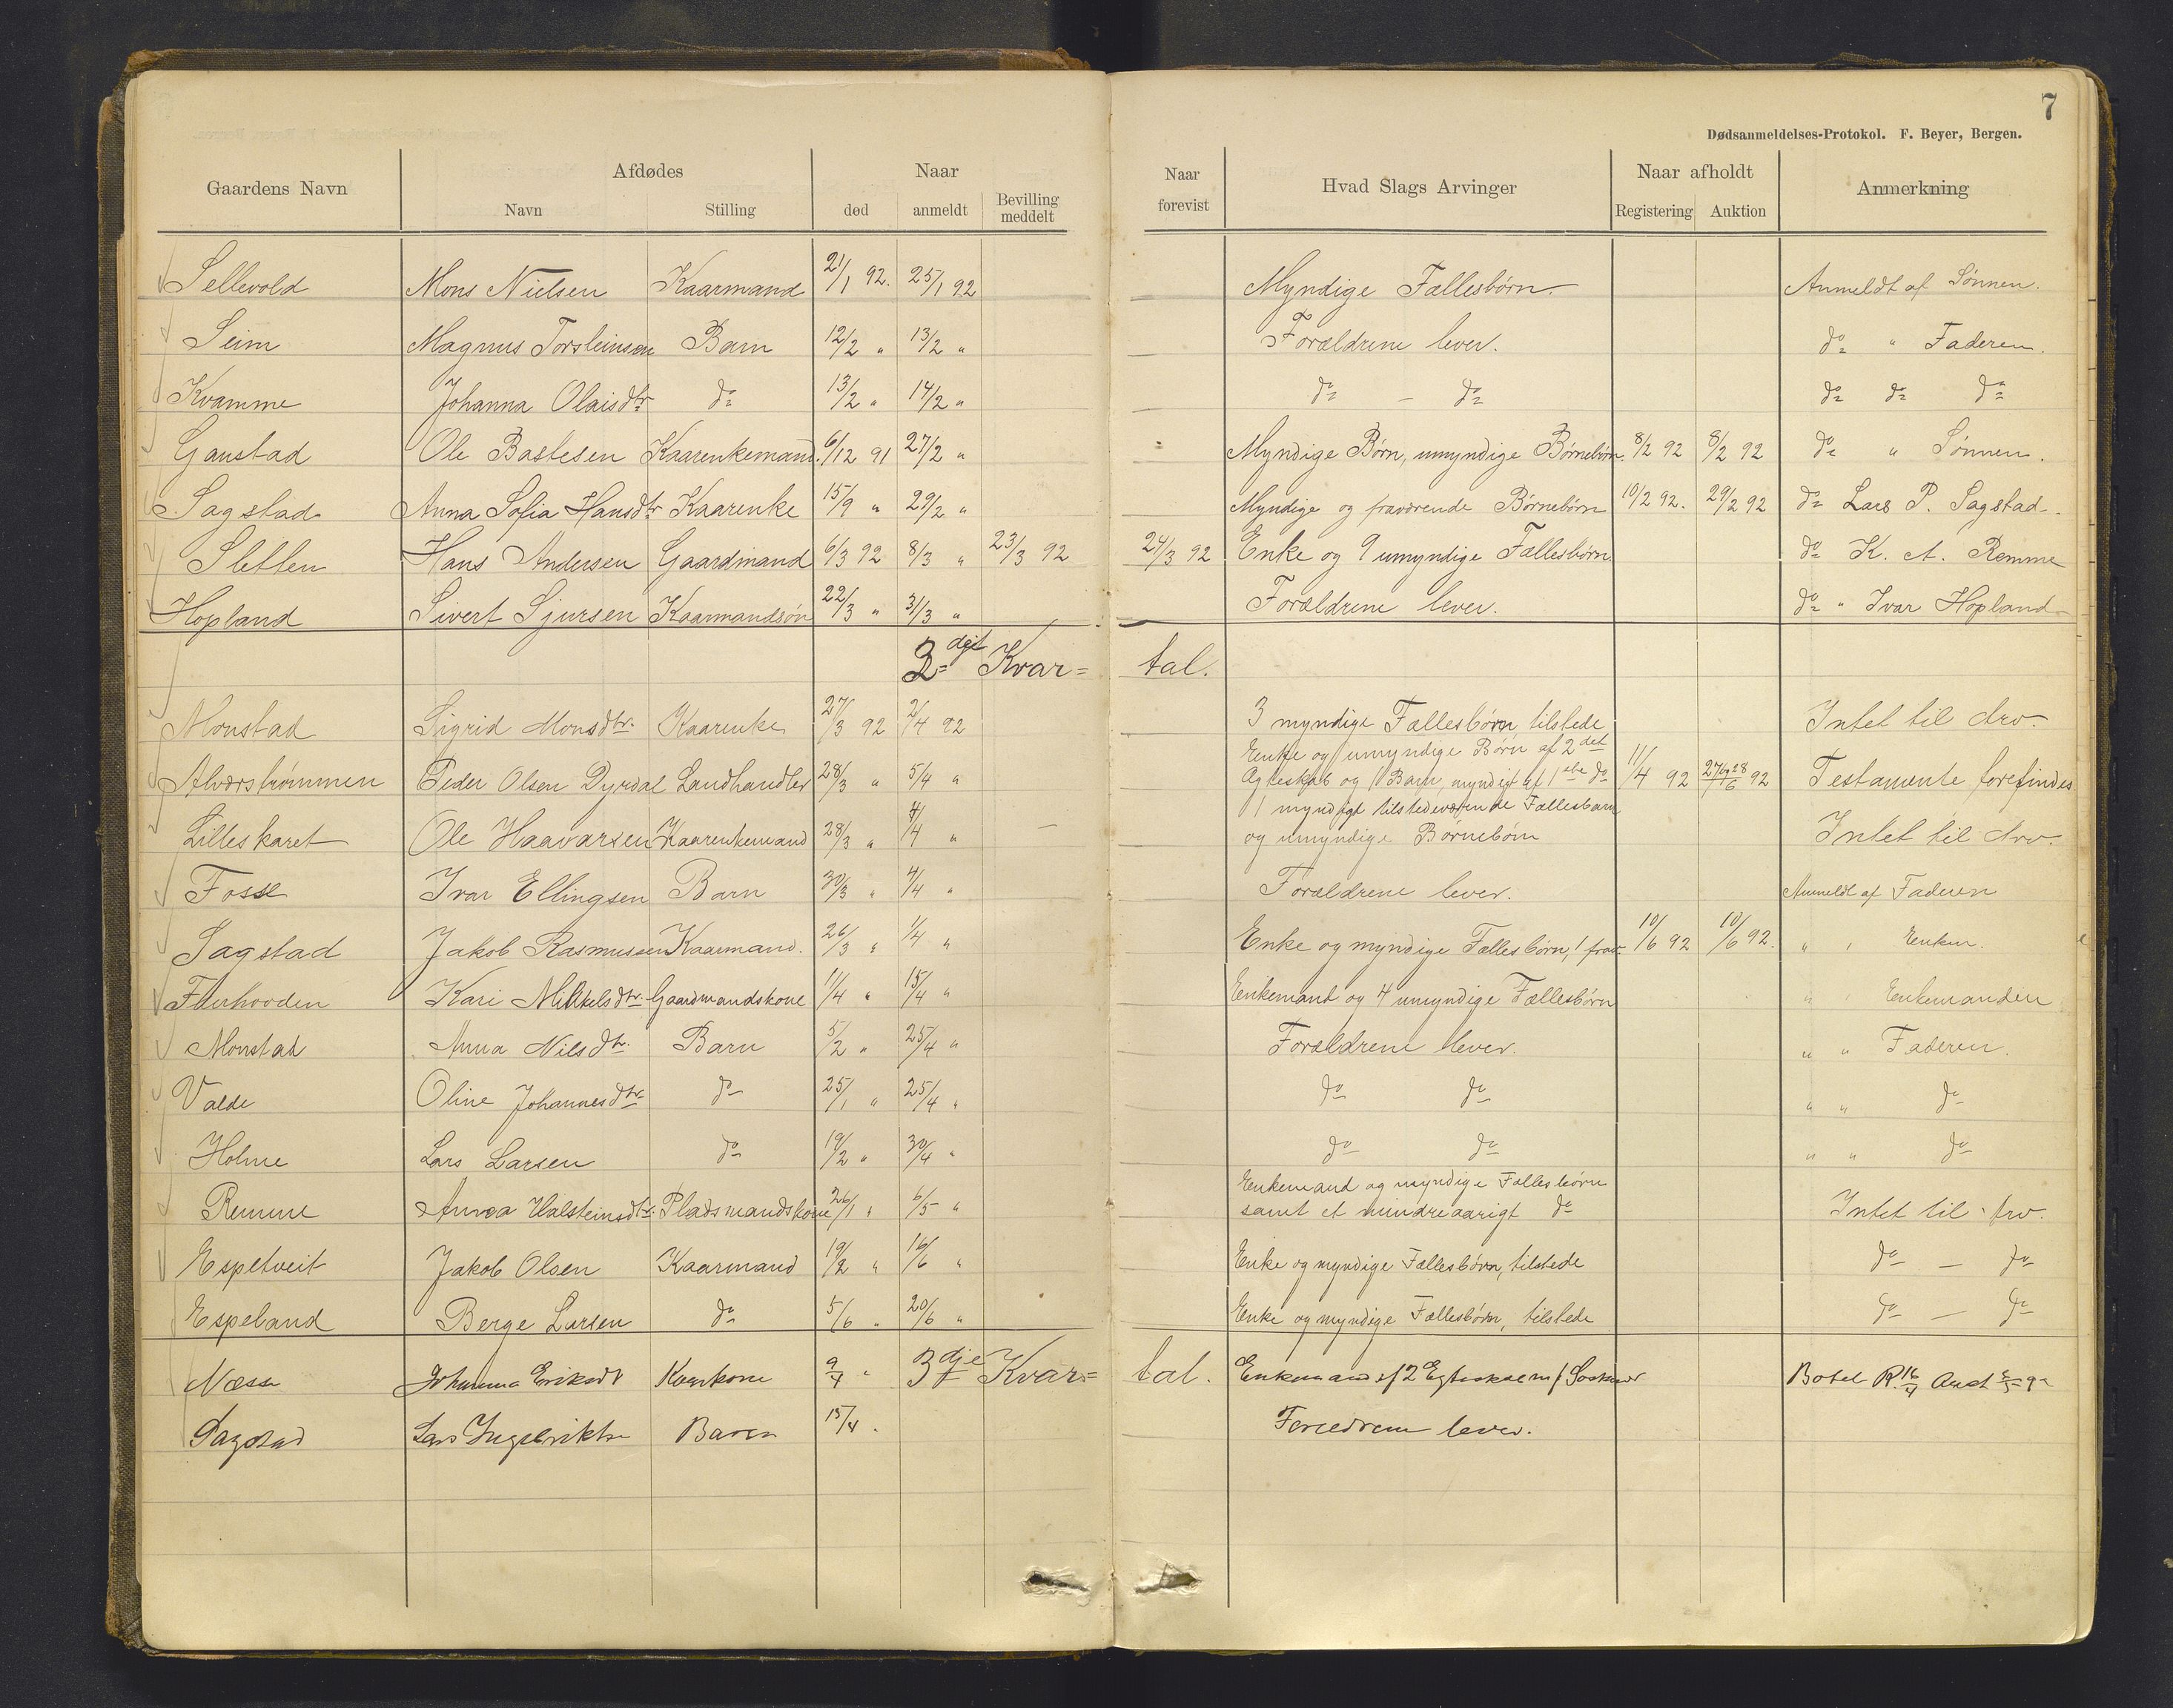 7
Dødsanmeldelses-Protokol. F. Beyer, Bergen.
Gaardens Navn Afdødes Naar Naar forevist Hvad Slags Arvinger Naar afholdt Anmerkning
Navn Stilling død anmeldt Bevilling meddelt Registering Auktion
Sellevold Mons Nielsen Kaarmand 21/1 92. 25/1 92 Myndige Fællesbørn. Anmeldt af Sønnen.
Seim Magnus Torsteinsen Barn 12/2 " 13/2 " Forældrene lever. do " Faderen.
Kvamme Johanna Olaisdtr do 13/2 " 14/2 " do - do do do do
Gaustad Ole Bastesen Kaarenkemand. 6/12 91 27/2 " Myndige Børn, umyndige Børnebørn. 8/2 92 8/2 92 do " Sønnen.
Sagstad Anna Sofia Hansdtr Kaarenke 15/9 " 29/2 " Myndige og fraværende Børnebørn 10/2 92. 29/2 92 do Lars P. Sagstad.
Sletten Hans Andersen Gaardmand 6/3 92 8/3 " 23/3 92 24/3 92 Enke og 9 umyndige Fællesbørn. do K. A. Remme
Hopland Sivert Sjursen Kaarmandsøn 22/3 " 31/3 " Forældrene lever. do " Ivar Hopland
2det Kvartal.
Monstad Sigrid Monsdtr. Kaarenke 27/3 92 2/4 92 3 myndige Fællesbørn, tilstede Intet til Arv.
Enke og umyndige Børn af 2det
Alværstrømmen Peder Olsen Dyrdal Landhandler 28/3 " 5/4 " Ægteskab og 1 Barn, myndigt af 1ste do 11/4 92 27/6 28/6 92 Testamente forefindes
1 myndigt tilstedeværende Fællesbarn
Lilleskaret Ole Haavarsen Kaarenkemand 28/3 " 4/4 " — og umyndige Børnebørn Intet til Arv.
Fosse Ivar Ellingsen Barn 30/3 " 4/4 " Forældrene lever. Anmeldt af Faderen
Sagstad Jakob Rasmussen Kaarmand. 26/3 " 1/4 " Enke og myndige Fællesbørn, 1 frav. 10/6 92 10/6 92. " " Enken.
Kari Mikkelsdtr. Gaardmandskone 11/4 " 15/4 " Enkemand og 4 umyndige Fællesbørn " " Enkemanden
Monstad Anna Nilsdtr. Barn 5/2 " 25/4 " Forældrene lever. " " Faderen.
Valde Oline Johannesdtr. do 25/1 " 25/4 " do do " " do
Holme Lars Larsen do 19/2 " 30/4 " do do " " do
Enkemand og myndige Fællesbørn
Remme Anna Halsteinsdtr. Pladsmandskone 26/1 " 6/5 " samt et mindreaarigt do Intet til Arv.
Espetveit Jakob Olsen Kaarmand 19/2 " 16/6 " Enke og myndige Fællesbørn, tilstede do — do
Espeland Berge Larsen do 5/6 " 20/6 " Enke og myndige Fællesbørn, tilstede do — do
3dje Kvartal.
Næsse Johanna Eriksdt Kaarkone 9/4 " Enkemand af 2 Egteskab
Sagstad Lars Barn 15/4 . Forældrene lever.